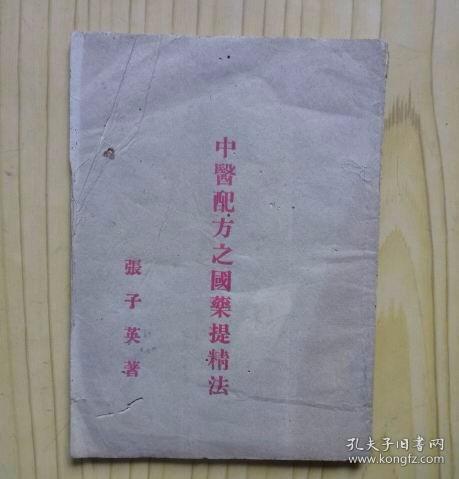 中醫配方之國藥提精法
張子英著
孔夫子旧书网
www.kongfz.com